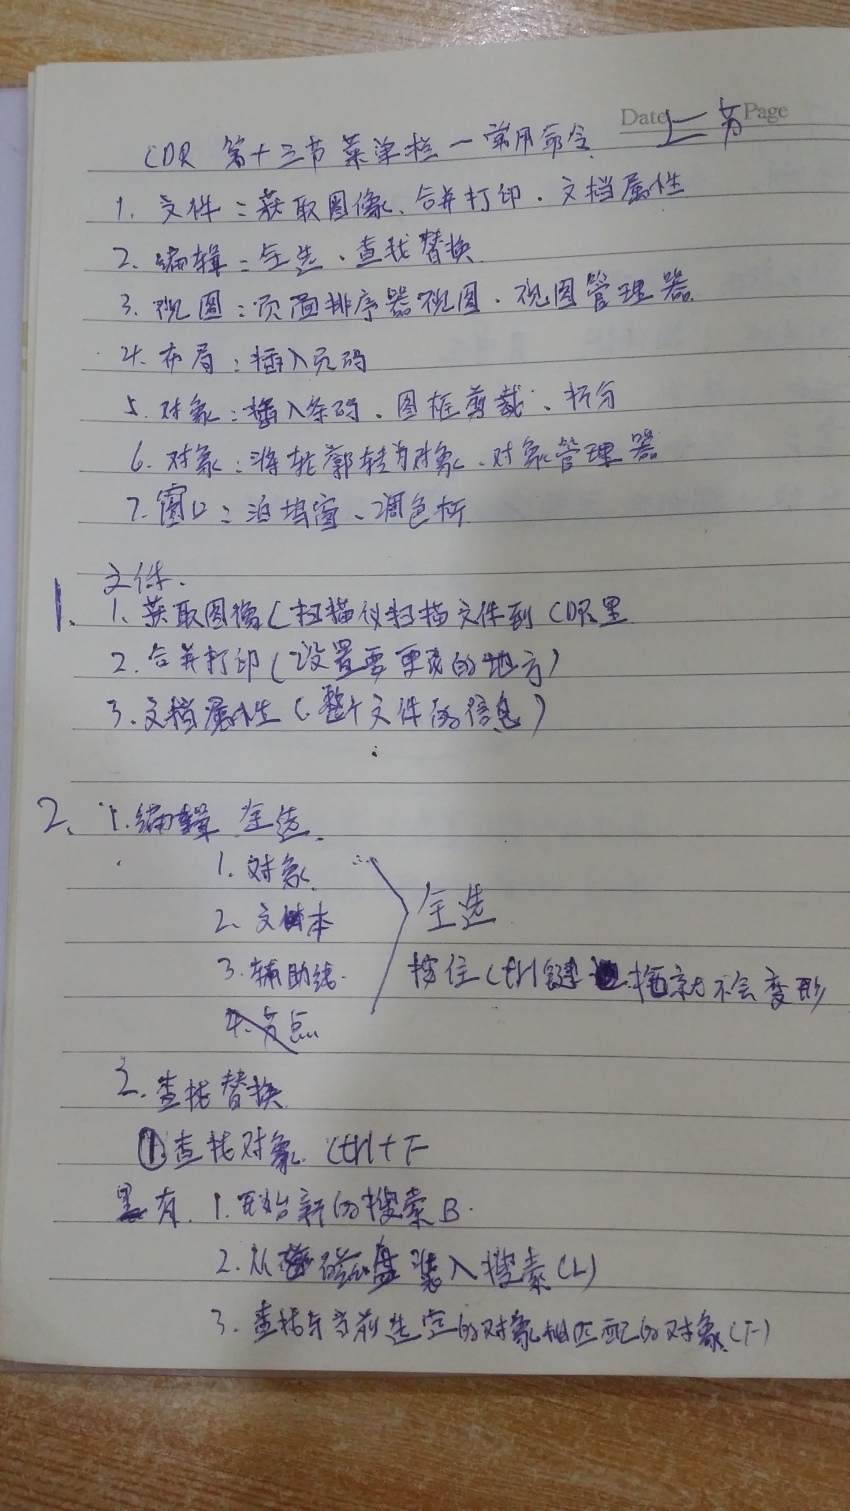 Date 上一节 Page
CDR 第十三节菜单栏一常用命令
1. 文件：获取图像、合并打印、文档属性
2. 编辑：全选、查找替换
3. 视图：页面排序器视图、视图管理器
4. 布局：插入页码
5. 对象：插入条码、图框剪裁、拆分
6. 对象：将轮廓转为对象、对象管理器
7. 窗口：泊坞窗、调色板
1. 文件.
1. 获取图像(扫描仪扫描文件到CDR里
2. 合并打印(设置要更改的地方)
3. 文档属性(整个文件的信息)
2. 1.编辑 全选.
1. 对象
2. 文本
3. 辅助线
4. 节点
全选
按住Ctrl键 拖就不会变形
2. 查找替换
①查找对象 Ctrl+F
里有 1. 开始新的搜索B.
2. 从磁盘装入搜素(L)
3. 查找与当前选定的对象相匹配的对象(F)